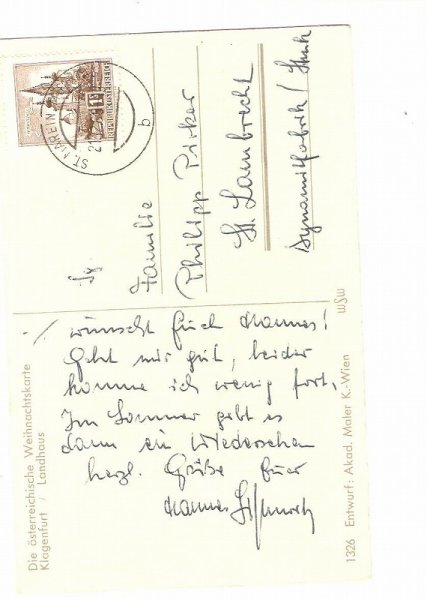 Die österreichische Weihnachtskarte
Klagenfurt / Landhaus
./. wünscht Euch Hannes!
Geht mir gut, leider
komme ich wenig fort,
Im Sommer gibt es
dann ein Wiedersehen
herzl. Grüße Euer
Hannes
1326 Entwurf: Akad. Maler K.-Wien
WSW
ST. MAREIN
21
b
1 S
REPUBLIK ÖSTERREICH
Familie
Philipp Pirker
St. Lambrecht
Dynamitfabrik / Stmk